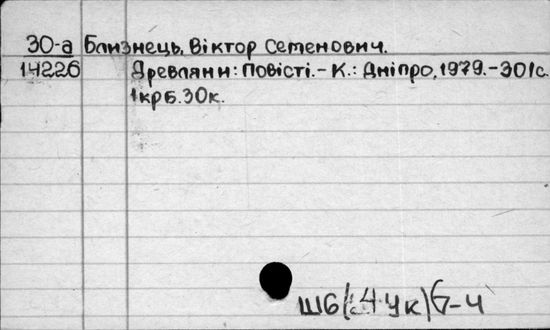 30-а Близнець, Віктор Семенович.
14226 Древляни: Повісті. - К.: Дніпро, 1979. - 301с.
1крб. 30к.
Ш6(4Ук)6-4